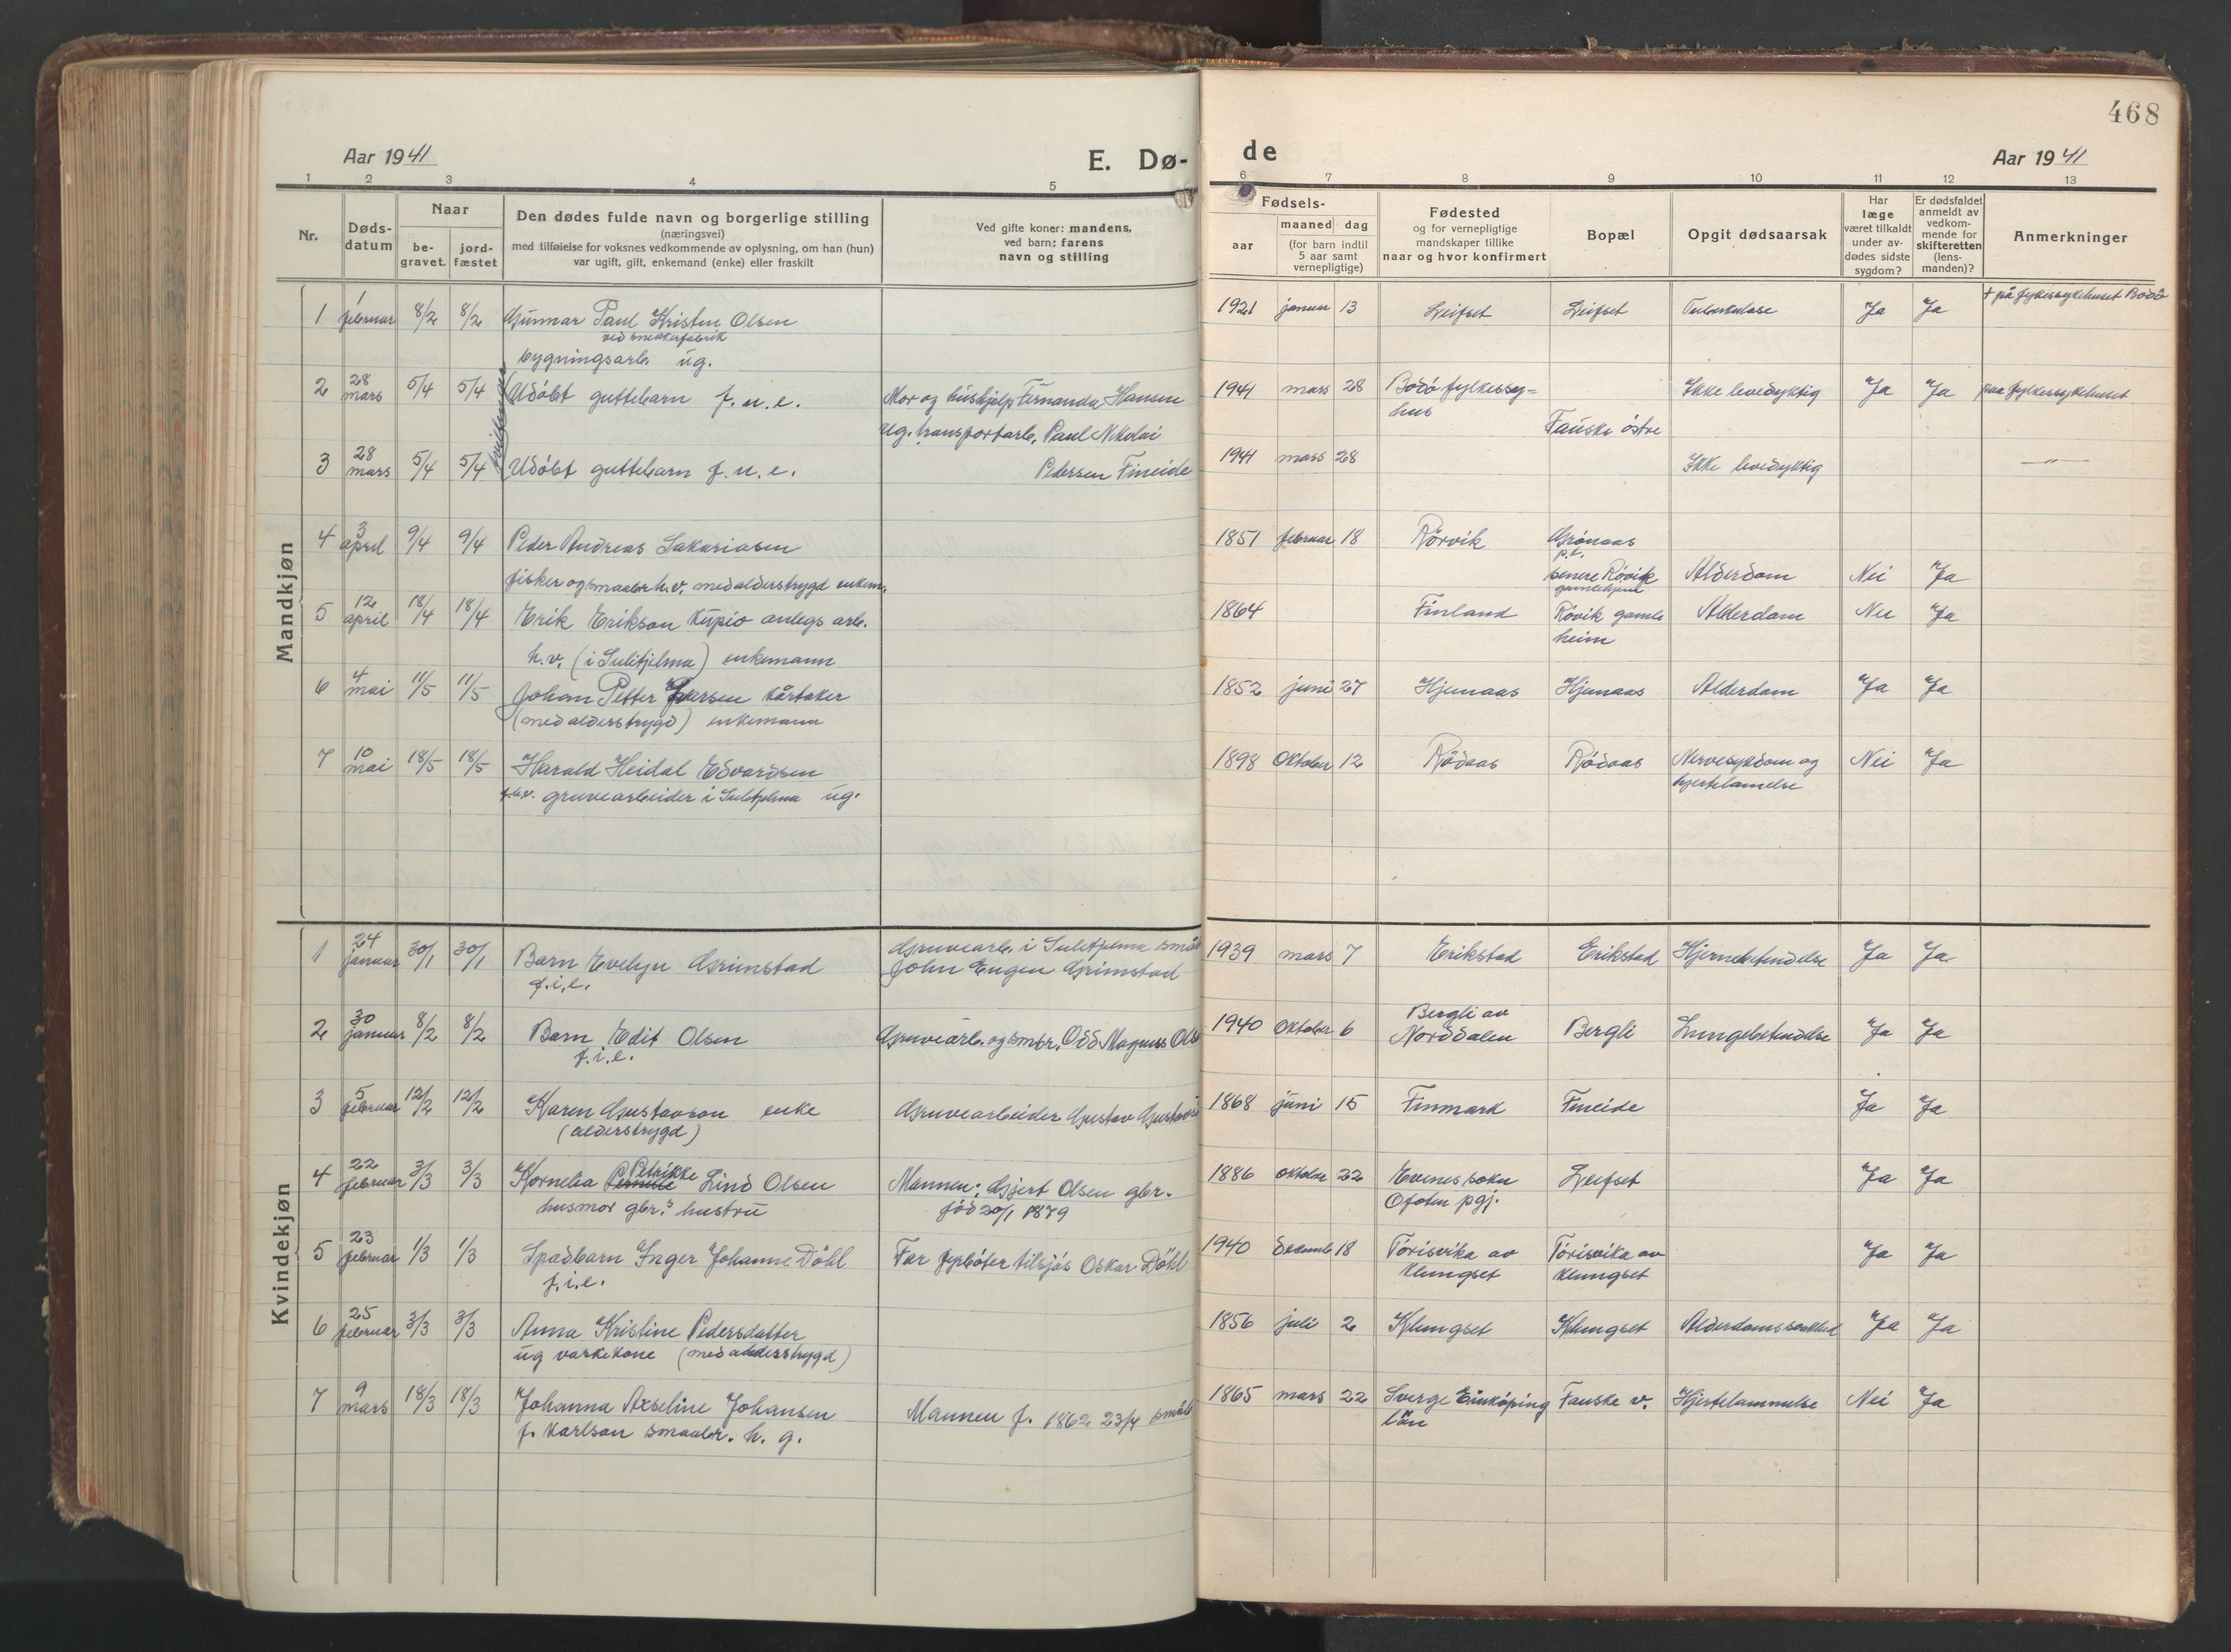 468
Aar 1941
E. Dø-
de
Aar 1941
1 2 3 4 5 6 7 8 9 10 11 12 13
Nr.
Døds-
datum
Naar
be-
gravet.
jord-
fæstet
Den dødes fulde navn og borgerlige stilling
(næringsvei)
med tilføielse for voksnes vedkommende av oplysning, om han (hun)
var ugift, gift, enkemand (enke) eller fraskilt
Ved gifte koner: mandens,
ved barn: farens
navn og stilling
Fødsels-
aar
maaned dag
(for barn indtil
5 aar samt
vernepligtige)
Fødested
og for vernepligtige
mandskaper tillike
naar og hvor konfirmert
Bopæl
Opgit dødsaarsak
Har
læge
været tilkaldt
under av-
dødes sidste
sygdom?
Er dødsfaldet
anmeldt av
vedkom-
mende for
skifteretten
(lens-
manden)?
Anmerkninger
Mandkjøn
1 1 februar 8/2 8/2 Gunnar Paul Kristen Olsen 1921 januar 13 Leifset Leifset Tuberkulose Ja Ja + på fylkessykehuset Bodö
ved snekkerfabrik
bygningsarb. ug.
2 28 mars 5/4 5/4 Udöbt guttebarn f. u. e. Mor og hushjelp Fernanda Hansen 1941 mars 28 Bodö fylkessy= Ikke levedyktig Ja Ja paa fylkessykehuset
hus
ug. transportarb. Paul Nikolai Fauske östre
3 28 mars 5/4 5/4 Udöbt guttebarn f. u. e. Pedersen Fineide 1941 mars 28 Ikke levedyktig —"—
4 3 april 9/4 9/4 Peder Andreas Sakariasen 1851 februar 18 Rörvik Grönaas
p.t.
fisker og smaabr. h.v. med alderstrygd enkem. senere Rövik Alderdom Nei Ja
gamlehjem
5 12 april 18/4 18/4 Erik Erikson Kupio anlegs arb. 1864 Finland Rövik gamle Alderdom Nei Ja
heim
h.v. (i Sulitjelma) enkemann
6 4 mai 11/5 11/5 Johan Petter Iversen kårtaker 1852 juni 27 Hjemaas Hjemaas Alderdom Ja Ja
(med alderstrygd) enkemann
7 10 mai 18/5 18/5 Harald Heidal Edvardsen 1898 Oktober 12 Rödaas Rödaas Nervesykdom og Nei Ja
hjertelamelse
gruvearbeider i Sulitjelma ug.
Kvindekjøn
1 24 januar 30/1 30/1 Barn Evelyn Grimstad Gruvearb. i Sulitjelma småb 1939 mars 7 Erikstad Erikstad Hjernebetendelse Ja Ja
f.i.e. John Eugen Grimstad
2 30 januar 8/2 8/2 Barn Edit Olsen Gruvearb. og smbr. Odd Magnus Ols 1940 Oktober 6 Bergli av Bergli Lungebetendelse Ja Ja
f.i.e. Norddalen
3 5 februar 12/2 12/2 Karen Gustavson enke Gruvearbeider Gustav Gustavs 1868 juni 15 Finmark Fineide Ja Ja
(alderstrygd)
4 22 februar 3/3 3/3 Kornelia Pernille Petrikke Lind Olsen Mannen: Gjert Olsen gbr. 1886 oktober 22 Evenes sokn Leifset Ja Ja
husmor gbr.s hustru föd 20/1 1879 Ofoten pgj.
5 23 februar 1/3 1/3 Spadbarn Inger Johanne Döhl Far fyrböter tilsjös Oskar Döhl 1940 desember 18 Törisvika av Törisvika av Ja Ja
f.i.e. Klungset Klungset
6 25 februar 3/3 3/3 Anna Kristine Pedersdatter 1856 juli 2 Klungset Klungset Ja Ja
ug vaskekone (med alderstrygd)
7 9 mars 18/3 18/3 Johanna Axseline Johansen Mannen f. 1862 23/4 småb 1865 mars 22 Sverge Fauske v. Hjertelammelse Nei Ja
län
f. Karlson smaabr. h. g.